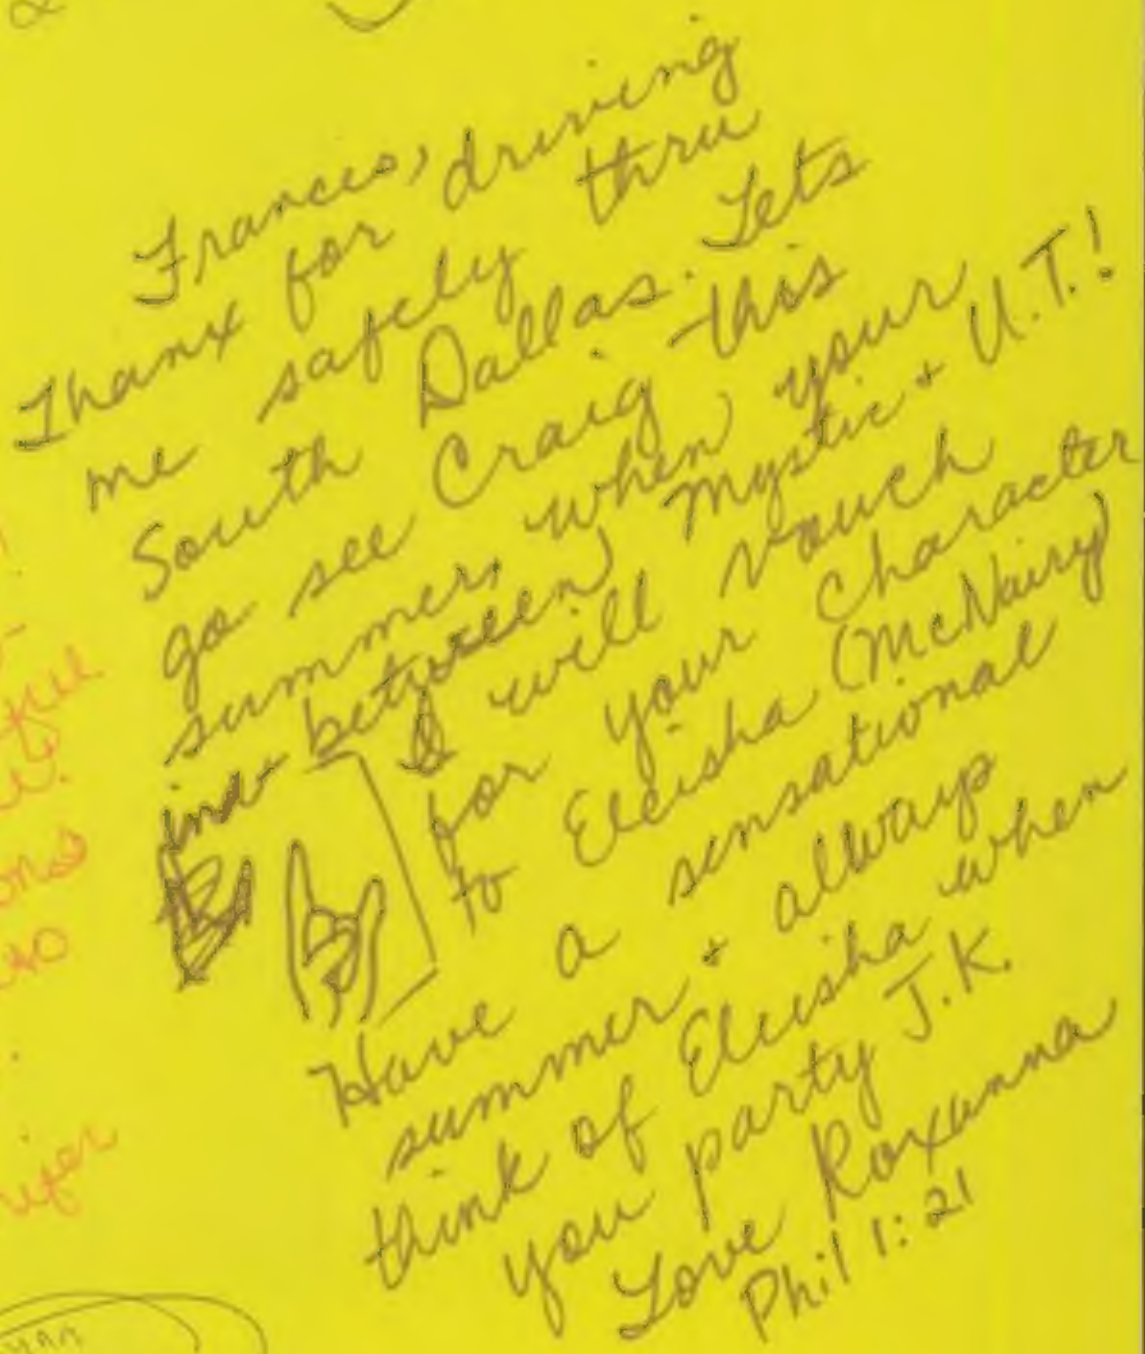 Frances,
Thanx for driving
me safely thru
South Dallas. Lets
go see Craig this
summer, when your
in between Mystic + U.T.!
I will vouch
for your Character
to Eleisha (McNairy)
Have a sensational
summer + allways
think of Eleisha when
you party J.K.
Love Roxanna
Phil 1:21